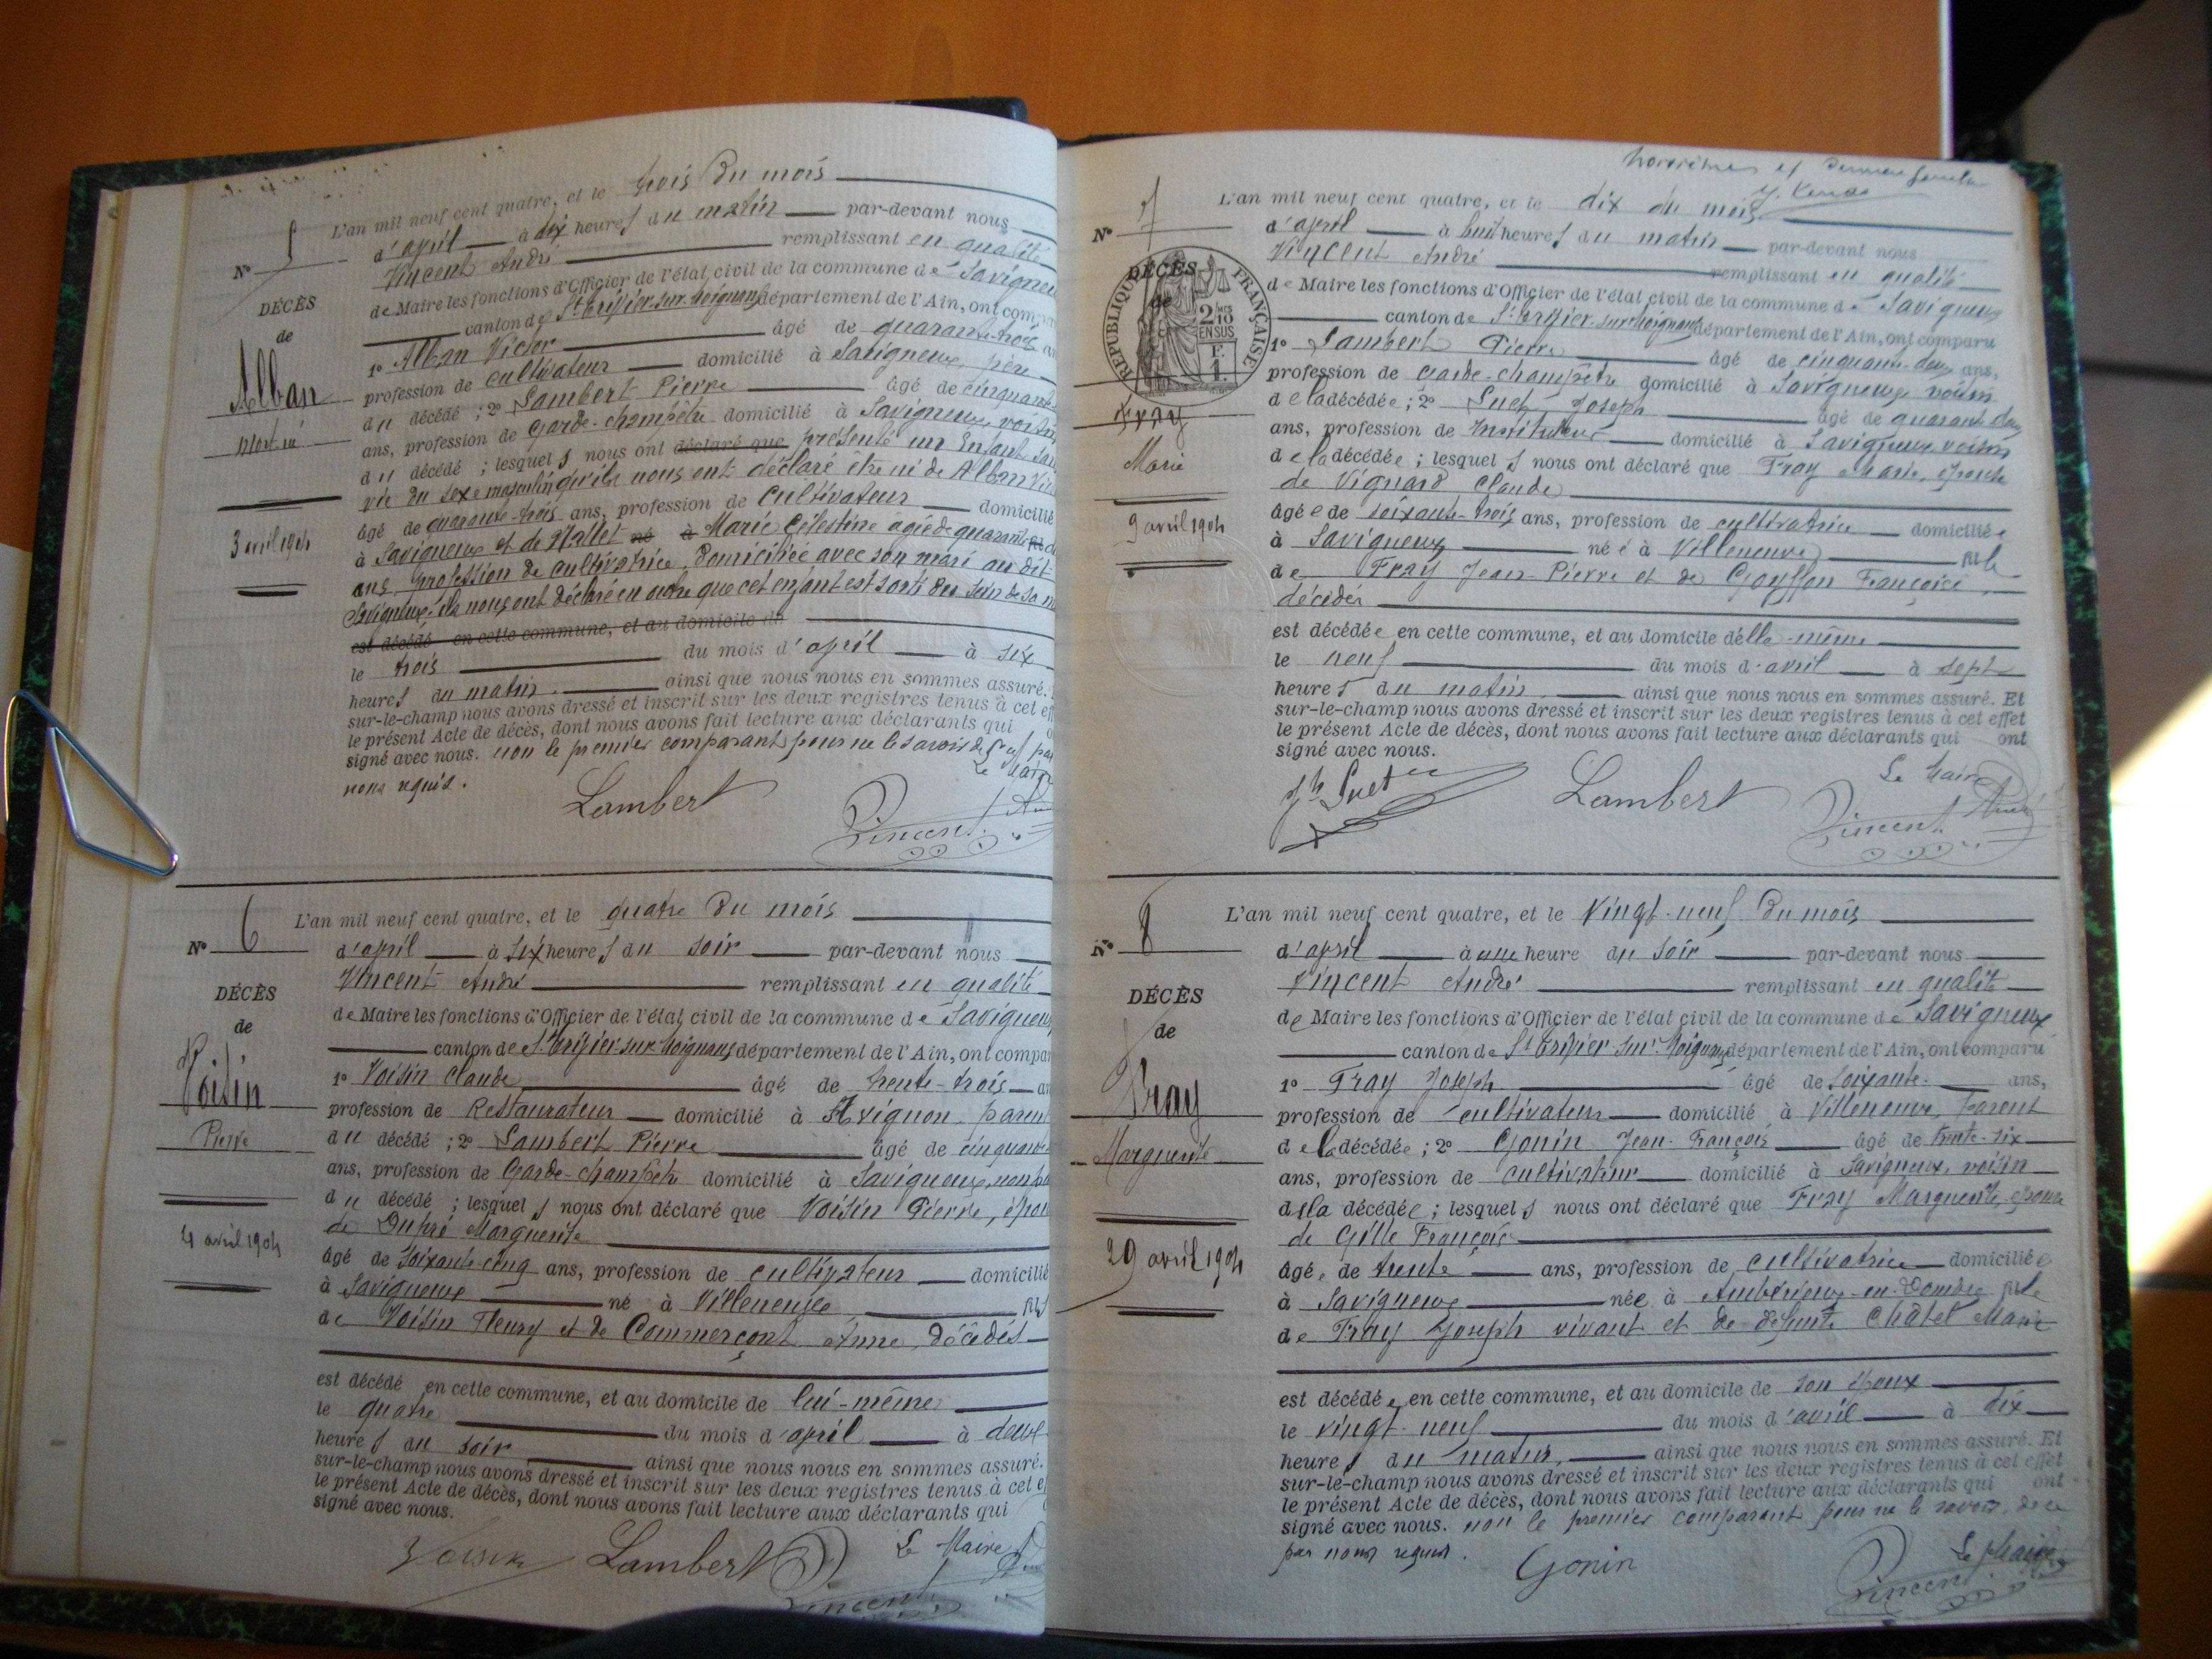 L'an mil neuf cent quatre, et le trois du mois
N° 5 d'april à dix heures du matin par-devant nous
Vincent André remplissant en qualité
DÉCÈS de Maire les fonctions d'Officier de l'état civil de la commune de Savigneux
de canton de St Trivier-sur-Moignans département de l'Ain, ont comparu
1° Alban Victor âgé de quarante-trois
Alban profession de cultivateur domicilié à Savigneux, père
du décédé ; 2° Lambert Pierre âgé de cinquante
mort né ans, profession de Garde-champêtre domicilié à Savigneux, voisin
du décédé ; lesquels nous ont déclaré que présenté un Enfant sans
vie du sexe masculin qu'ils nous ont déclaré être né de Alban
âgé de quarante-trois ans, profession de cultivateur domicilié
3 avril 1904 à Savigneux et de Mallet né à Marie Célestine agée de quarante
ans, profession de cultivatrice, domiciliée avec son mari au dit
Savigneux, ils nous ont déclaré en outre que cet enfant est sorti du sein de sa
est décédé en cette commune, et au domicile de
le trois du mois d'april à six
heures du matin. ainsi que nous nous en sommes assuré.
sur-le-champ nous avons dressé et inscrit sur les deux registres tenus à cet
le présent Acte de décès, dont nous avons fait lecture aux déclarants qui
signé avec nous. non le premier comparant pour ne le savoir de ce par
nous requis. Le Maire
Lambert Vincent
L'an mil neuf cent quatre, et le quatre du mois
N° 6 d'april à six heures du soir par-devant nous
Vincent André remplissant en qualité
DÉCÈS de Maire les fonctions d'Officier de l'état civil de la commune de Savigneux
de canton de St Trivier-sur-Moignans département de l'Ain, ont compar
1° Voisin Claude âgé de trente-trois
Voisin profession de Restaurateur domicilié à Avignon, parent
du décédé ; 2° Lambert Pierre âgé de cinquante
Pierre ans, profession de Garde-champêtre domicilié à Savigneux
du décédé ; lesquels nous ont déclaré que Voisin Pierre, époux
de Dupré Marguerite
4 avril 1904 âgé de soixante-cinq ans, profession de cultivateur domicilié
à Savigneux né à Villeneuve fils
de Voisin Fleury et de Commerçont Anne, décédés
est décédé en cette commune, et au domicile de lui-même
le quatre du mois d'april à deux
heures du soir ainsi que nous nous en sommes assuré.
sur-le-champ nous avons dressé et inscrit sur les deux registres tenus à cet
le présent Acte de décès, dont nous avons fait lecture aux déclarants qui
signé avec nous.
Voisin Lambert Le Maire
Vincent
L'an mil neuf cent quatre, et le dix du mois
N° 7 d'april à huit heures du matin par-devant nous
Vincent André remplissant en qualité
DÉCÈS de Maire les fonctions d'Officier de l'état civil de la commune de Savigneux
de canton de St Trivier-sur-Moignans département de l'Ain, ont comparu
RÉPUBLIQUE FRANÇAISE
2/10 EN SUS
1° Lambert Pierre âgé de cinquante-deux ans,
profession de Garde-champêtre domicilié à Savigneux voisin
de la décédée ; 2° Suet Joseph âgé de quarante-deux
Fray ans, profession de Instituteur domicilié à Savigneux voisin
Marie de la décédée ; lesquels nous ont déclaré que Fray Marie, épouse
de Vignard Claude
9 avril 1904 âgée de soixante-trois ans, profession de cultivatrice domiciliée
à Savigneux née à Villeneuve fille
de Fray Jean-Pierre et de Goyffon Françoise
décédés
est décédée en cette commune, et au domicile d'elle-même
le neuf du mois d'avril à sept
heures du matin. ainsi que nous nous en sommes assuré. Et
sur-le-champ nous avons dressé et inscrit sur les deux registres tenus à cet effet
le présent Acte de décès, dont nous avons fait lecture aux déclarants qui ont
signé avec nous. Le Maire
Jh Suet Lambert Vincent André
L'an mil neuf cent quatre, et le vingt-neuf du mois
N° 8 d'april à une heure du soir par-devant nous
Vincent André remplissant en qualité
DÉCÈS de Maire les fonctions d'Officier de l'état civil de la commune de Savigneux
de canton de St Trivier-sur-Moignans département de l'Ain, ont comparu
1° Fray Joseph âgé de soixante ans,
Fray profession de cultivateur domicilié à Villeneuve, parent
de la décédée ; 2° Gonin Jean-François âgé de trente-six
Marguerite ans, profession de cultivateur domicilié à Savigneux, voisin
de la décédée ; lesquels nous ont déclaré que Fray Marguerite, épouse
de Gille François
29 avril 1904 âgée de trente ans, profession de cultivatrice domiciliée
à Savigneux née à Ambérieux-en-Dombes fille
de Fray Joseph vivant et de défunte Châtel Marie
est décédée en cette commune, et au domicile de son époux
le vingt-neuf du mois d'avril à dix
heures du matin, ainsi que nous nous en sommes assuré. Et
sur-le-champ nous avons dressé et inscrit sur les deux registres tenus à cet effet
le présent Acte de décès, dont nous avons fait lecture aux déclarants qui ont
signé avec nous. non le premier comparant pour ne le savoir, de ce
par nous requis. Le Maire
Gonin Vincent